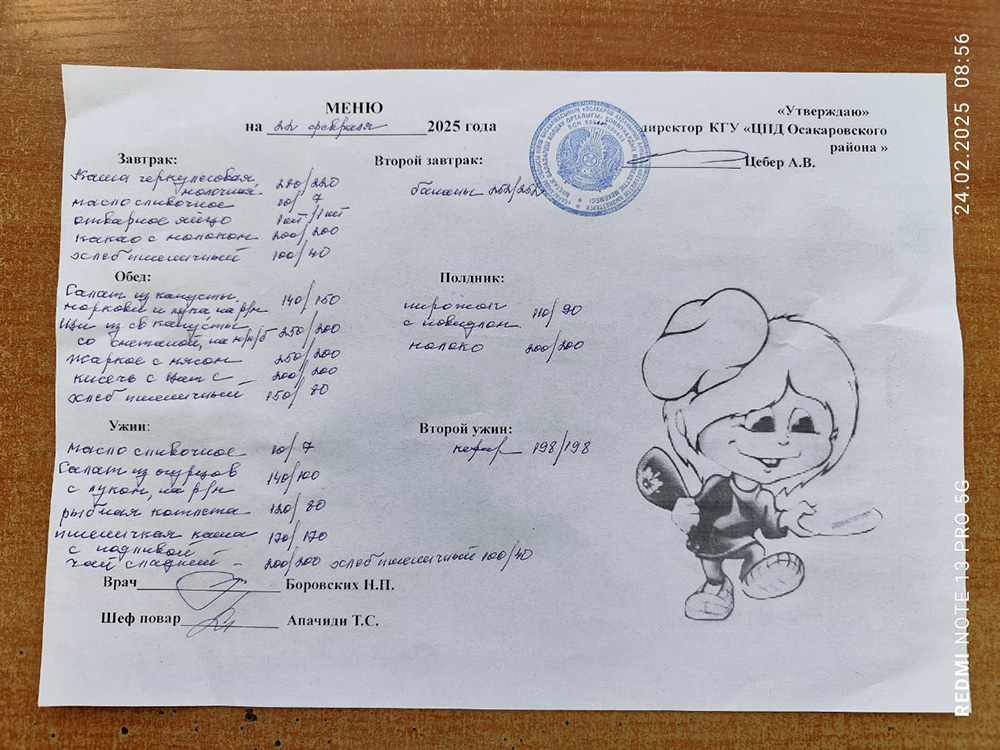 МЕНЮ
на 22 февраля 2025 года
«Утверждаю»
директор КГУ «ЦПД Осакаровского
района »
Цебер А.В.
Завтрак:
Каша геркулесовая,
молочная 280/220
масло сливочное 10/7
отварное яйцо 1шт/1шт
какао с молоком 200/200
хлеб пшеничный 100/40
Второй завтрак:
бананы 252/252
Обед:
Салат из капусты,
моркови и лука на р/м 140/150
Щи из св капусты
со сметаной, на м/к/б 250/200
жаркое с мясом 250/200
кисель с вит С 200/200
хлеб пшеничный 150/80
Полдник:
пирожок
с повидлом 110/90
молоко 200/200
Ужин:
масло сливочное 10/7
Салат из огурцов
с луком, на р/м 140/100
рыбная котлета 120/80
пшеничная каша
с подливой 170/170
чай сладкий - 200/200 хлеб пшеничный 100/40
Второй ужин:
кефир 198/198
Врач Боровских Н.П.
Шеф повар Апачиди Т.С.
24.02.2025 08:56
REDMI NOTE 13 PRO 5G